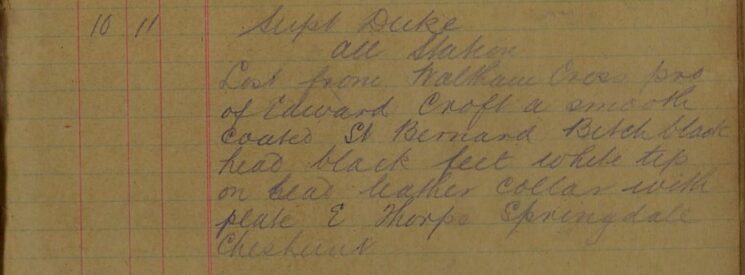 10 11 Supt Duke
all Station
Lost from Waltham Cross pro
of Edward Croft a smooth
coated St Bernard Bitch black
head black feet white tip
on head leather collar with
plate E Thorpe Springdale
Cheshunt